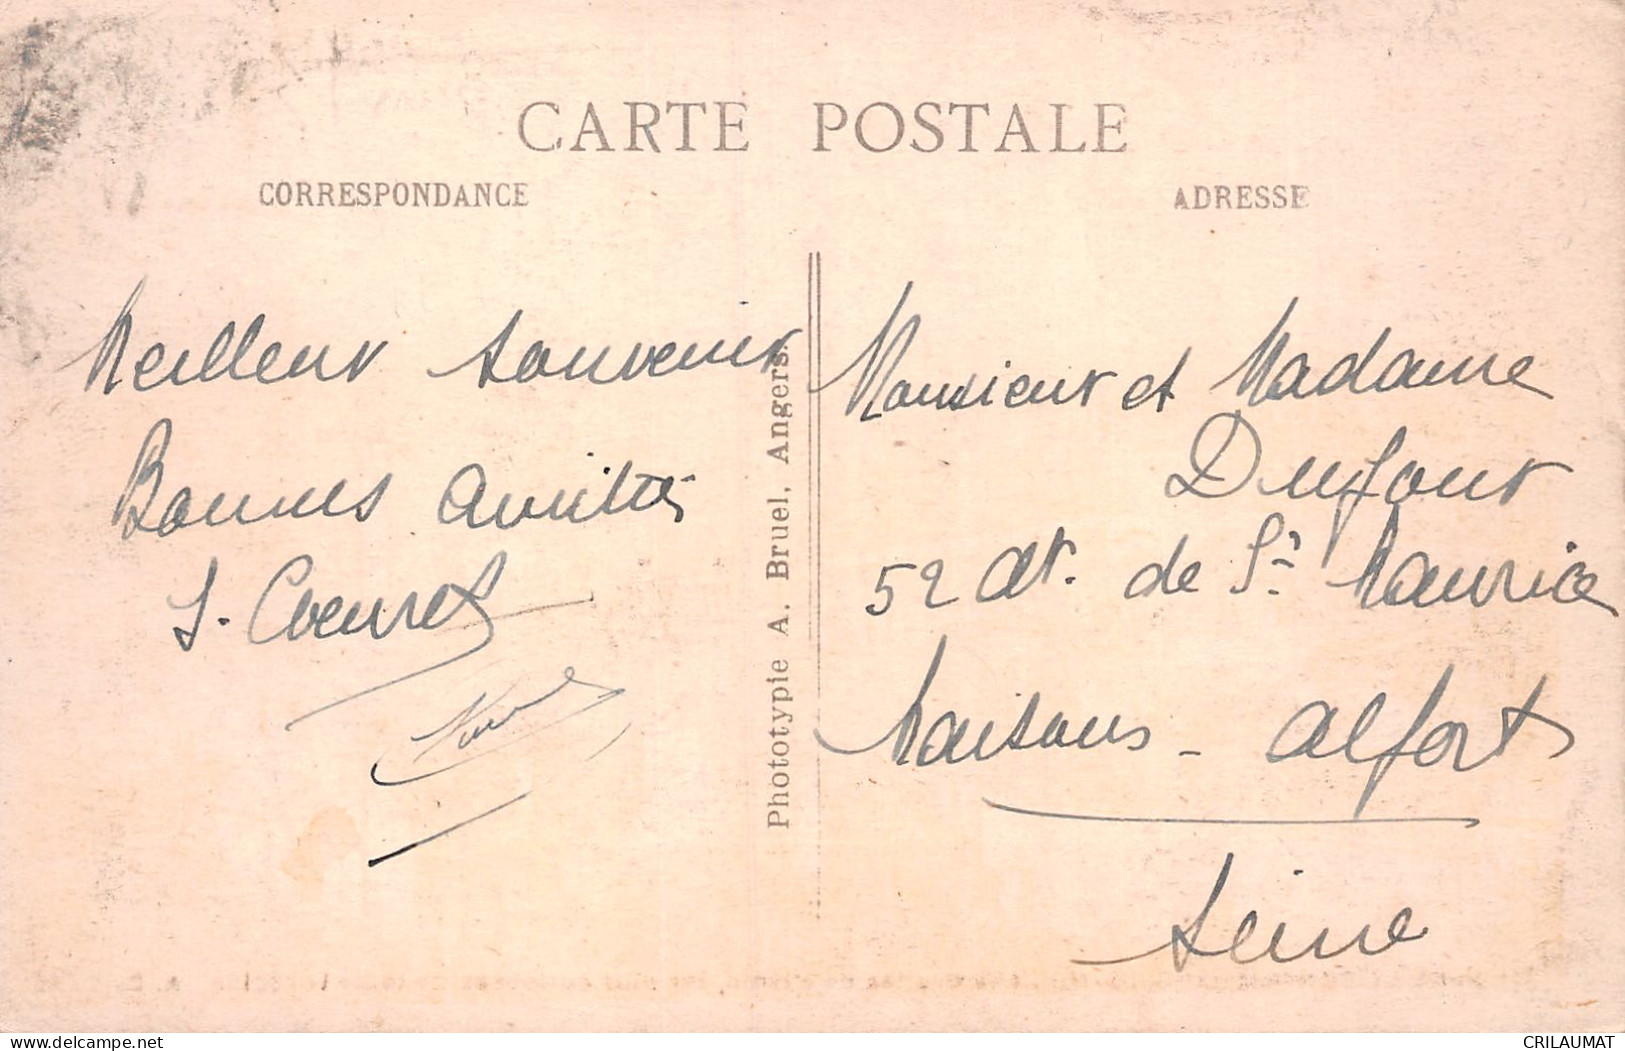 CARTE POSTALE
CORRESPONDANCE
ADRESSE
Meilleur souvenir
Bonnes amitiés
Phototypie A. Bruel, Angers.
Monsieur et Madame
Dufour
52 de St Maurice
Maisons-Alfort
Seine
www.delcampe.net
CRILAUMAT